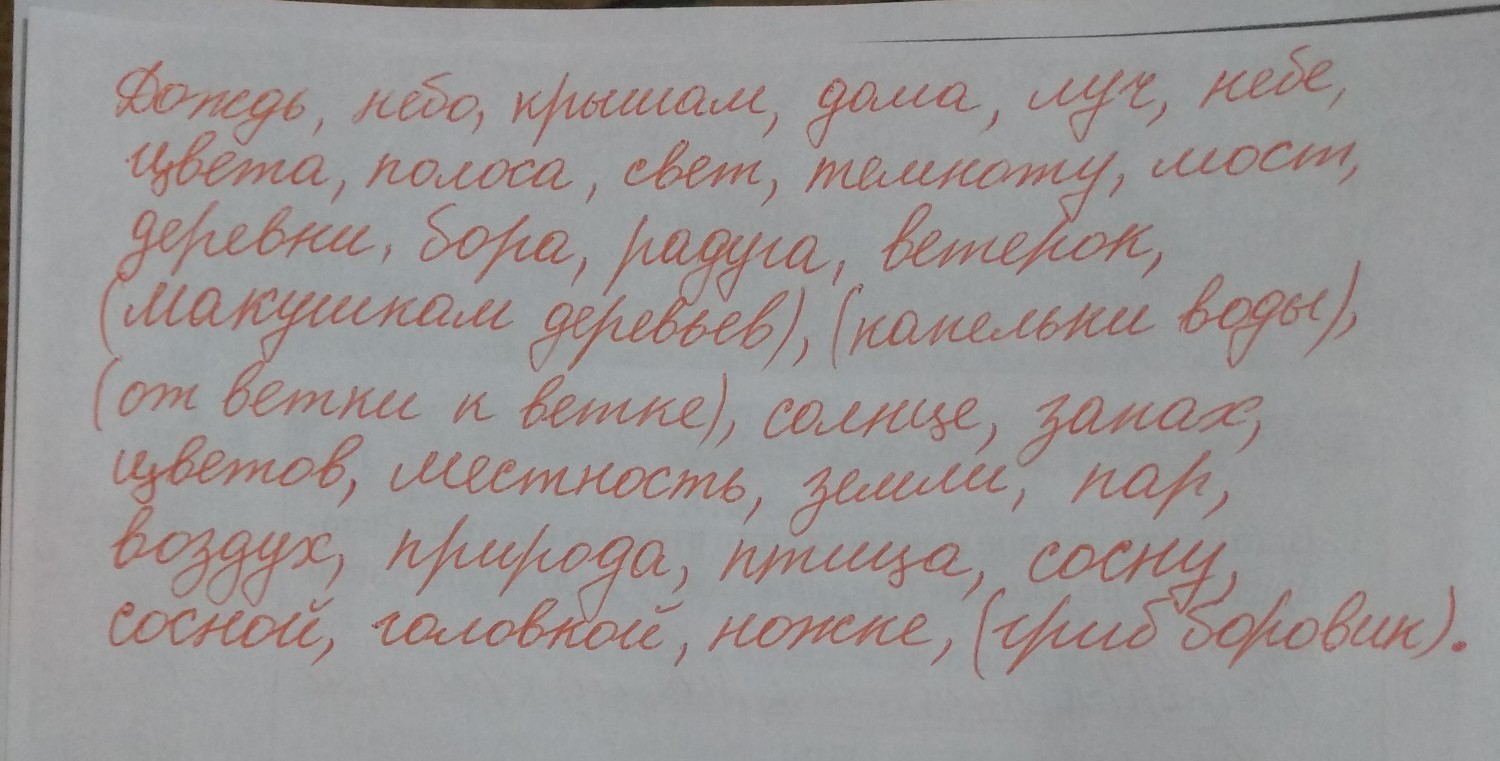 Дождь, небо, крышам, дома, луч, небе,
цвета, полоса, свет, темноту, мост,
деревни, бора, радуга, ветерок,
(макушкам деревьев), (капельки воды),
(от ветки к ветке), солнце, запах,
цветов, местность, земли, пар,
воздух, природа, птица, сосну,
сосной, головкой, ножке, (гриб боровик).